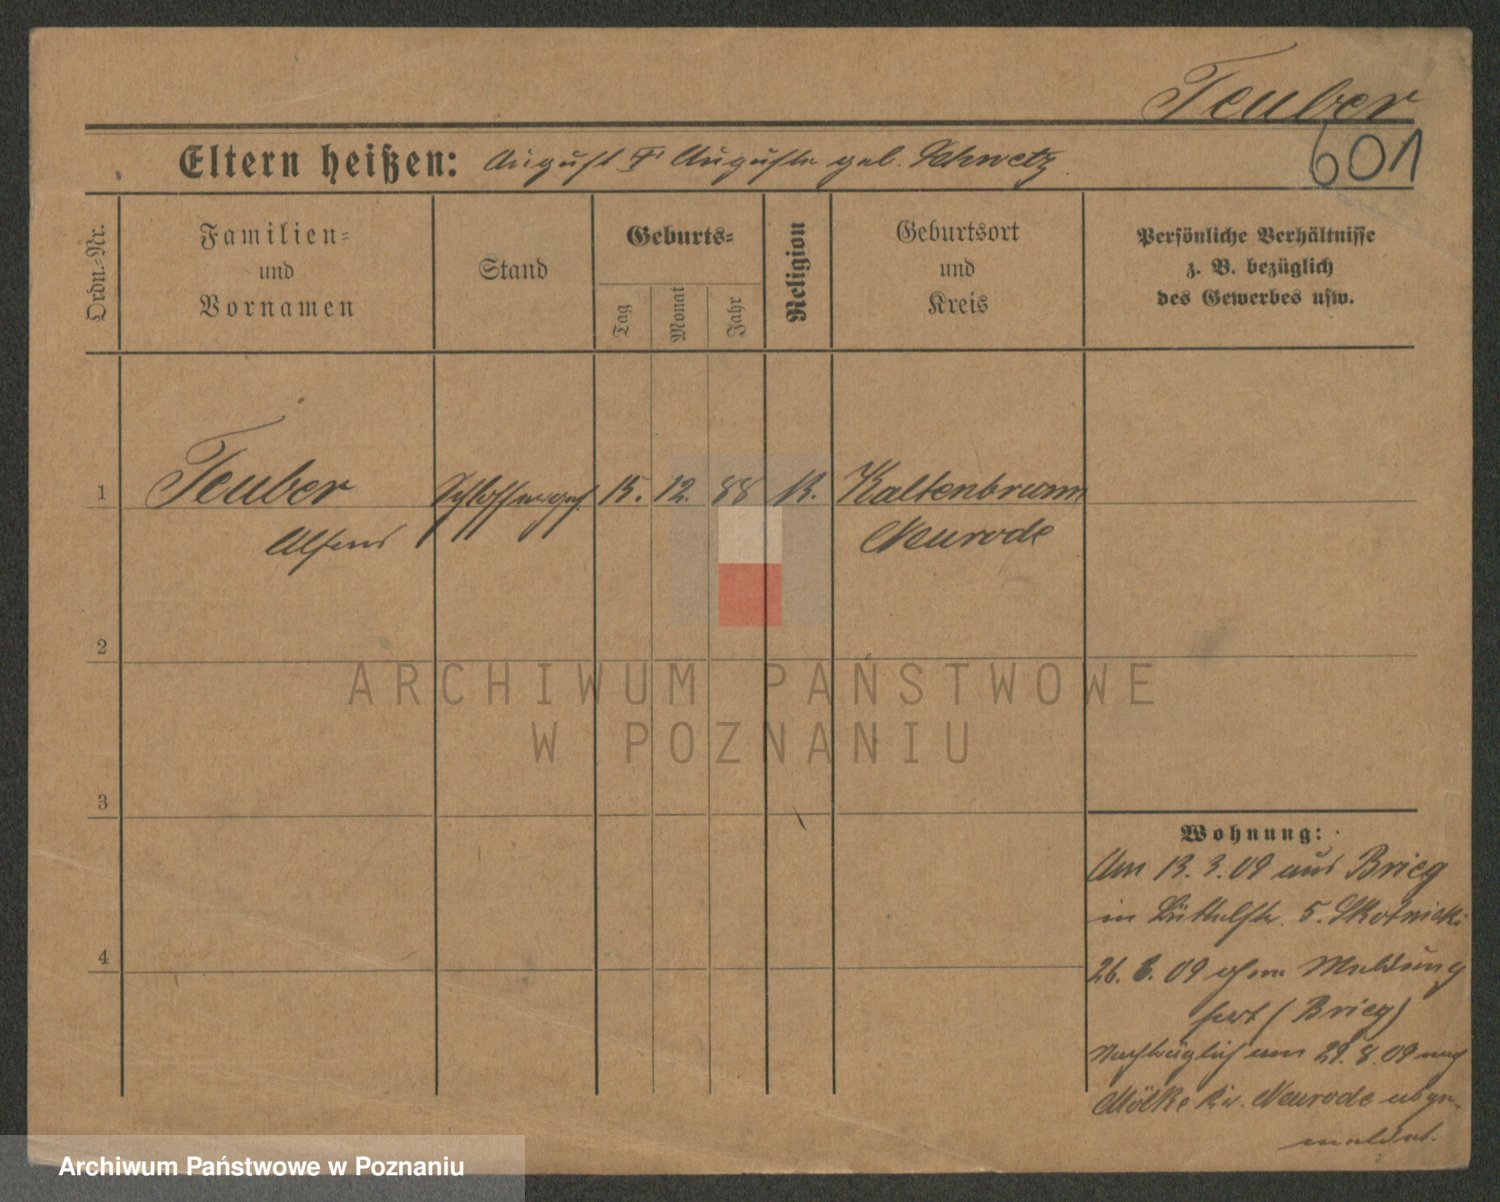 Teuber
601
Eltern heißen: August u. Auguste geb. Schwetz
Ordn.-Nr.
Familien-
und
Vornamen
Stand
Geburts-
Tag
Monat
Jahr
Religion
Geburtsort
und
Kreis
Persönliche Verhältnisse
z. B. bezüglich
des Gewerbes usw.
1
Teuber
Schlosserges.
15. 12. 88
K.
Kaltenbrunn
Neurode
2
3
4
Wohnung:
Am 13. 3. 09 aus Brieg
in 5. Skotnicki
26. 8. 09 ohne Meldung
fort (Brieg)
Nachträglich am 29. 8. 09 nach
Mölke Kr. Neurode abge-
meldet.
ARCHIWUM PAŃSTWOWE
W POZNANIU
Archiwum Państwowe w Poznaniu